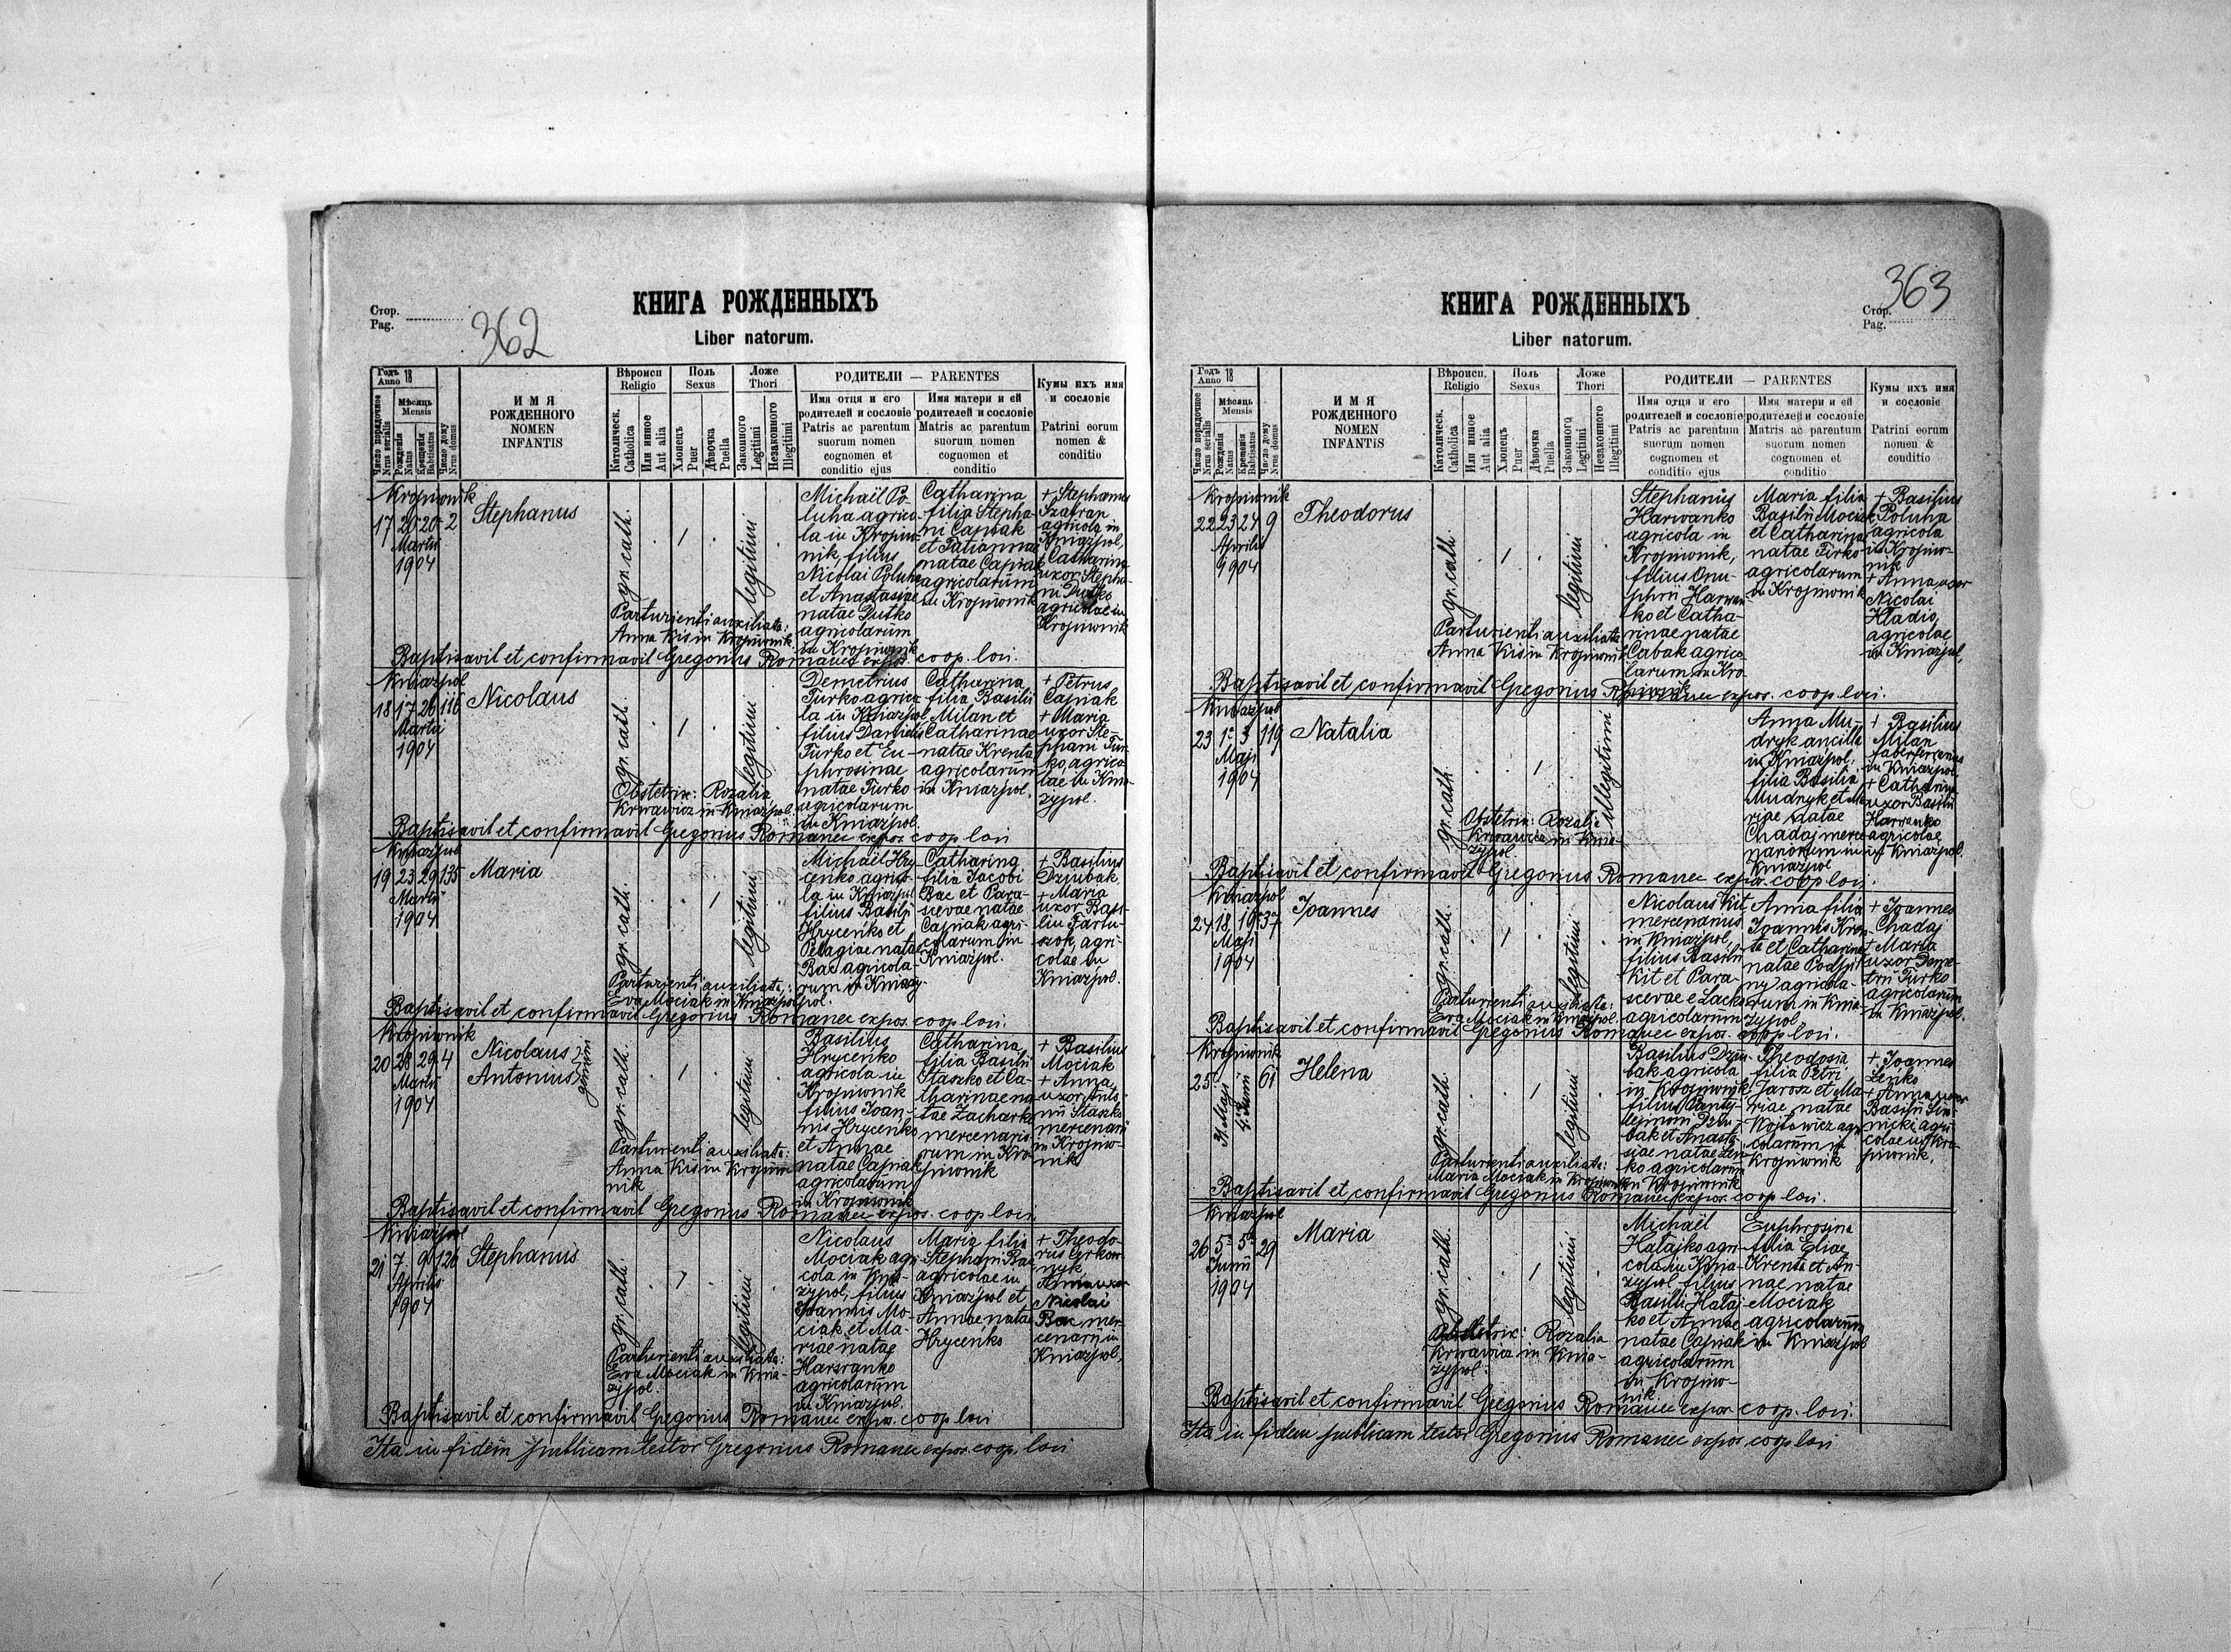 КНИГА РОЖДЕННЫХЪ
Стор.
Pag.
362
Liber natorum.
Годъ
Anno 18
Мѣсяць
Mensis
Число порядочное
Nrus serialis
Рожденія
Natus
Крещенія
Babtisatus
Число дому
Nrus domus
ИМЯ
РОЖДЕННОГО
NOMEN
INFANTIS
Вѣроисп
Religio
Католическ.
Catholica
Или инное
Aut alia
Поль
Sexus
Хлопець
Puer
Дѣвочка
Puella
Ложе
Thori
Законного
Legitimi
Незаконного
Illegitimi
РОДИТЕЛИ — PARENTES
Имя отця и его
родителей и сословіе
Patris ac parentum
suorum nomen
cognomen et
conditio ejus
Имя матери и ей
родителей и сословіе
Matris ac parentum
suorum nomen
cognomen et
conditio
Кумы ихъ имя
и сословіе
Patrini eorum
nomen &
conditio
Kropiwnik
17 20 20 2
Martii
1904
Stephanus
gr. cath.
1
legitimi
Michaël Po-
luha agrico-
la in Kropiw-
nik, filius
Nicolai Poluha
et Anastasiae
natae Dutko
agricolarum
in Kropiwnik
Catharina
filia Stepha-
ni Capiak
et Tatianna
natae Capiak
agricolarum
in Kropiwnik
+ Stephanus
Szafran
agricola in
Kniażpol,
+ Catharina
uxor Stepha-
ni Dutko
agricolae in
Kropiwnik
Parturienti auxiliata:
Anna Kis in Kropiwnik
Baptisavit et confirmavit Gregorius Romanec expos. coop. loci.
Kniażpol
18 17 26 116
Martii
1904
Nicolaus
gr. cath.
1
legitimi
Demetrius
Turko agrico-
la in Kniażpol
filius Danielis
Turko et Eu-
phrosinae
natae Turko
agricolarum
in Kniażpol.
Catharina
filia Basilii
Milan et
Catharinae
natae Krenta
agricolarum
in Kniażpol.
+ Petrus
Capiak
+ Maria
uxor Ste-
phani Tur-
ko, agrico-
lae in Knia-
żypol.
Obstetrix: Rozalia
Krwawicz in Kniażpol.
Baptisavit et confirmavit Gregorius Romanec expos. coop loci
Kniażpol
19 23 29 135
Martii
1904
Maria
gr. cath.
1
legitimi
Michaël Hry-
cenko agrico-
la in Kniażpol
filius Basilii
Hrycenko et
Pelagiae natae
Bac agricola-
rum in Kniaży-
pol.
Catharina
filia Jacobi
Bac et Para-
scevae natae
Capiak agri-
colarum in
Kniażpol.
+ Basilius
Dziubak,
+ Maria
uxor Basi-
lii Partu-
szok, agri-
colae in
Kniażpol.
Parturienti auxiliata:
Eva Mociak in Kniażpol
Baptisavit et confirmavit Gregorius Romanec expos. coop loci.
Kropiwnik
20 28 29 4
Martii
1904
Nicolaus
Antonius
gemini
gr. cath.
1
legitimi
Basilius
Hrycenko
agricola in
Kropiwnik
filius Joan-
nis Hrycenko
et Annae
natae Capiak
agricolarum
in Kropiwnik
Catharina
filia Basilii
Staszko et Ca-
tharinae na-
tae Zacharko
mercenario-
rum in Kro-
piwnik
+ Basilius
Mociak
+ Anna
uxor Anto-
nii Staszko
mercenarii
in Kropiw-
nik
Parturienti auxiliata:
Anna Kis in Kropiw-
nik
Baptisavit et confirmavit Gregorius Romanec expos. coop loci.
Kniażpol
21 7 9 126
Aprilis
1904
Stephanus
gr. cath.
1
legitimi
Nicolaus
Mociak agri-
cola in Knia-
żypol, filius
Joannis Mo-
ciak et Ma-
riae natae
Harwanko
agricolarum
in Kniażpol.
Maria filia
Stephani Bac
agricolae in
Kniażpol et
Annae natae
Hrycenko
+ Theodo-
rus Cerkow-
nyk
Anna uxor
Nicolai
Bac mer-
cenarii in
Kniażpol,
Parturienti auxiliata:
Eva Mociak in Knia-
żypol.
Baptisavit et confirmavit Gregorius Romanec expos. coop loci
Ita in fidem publicam testor Gregorius Romanec expos. coop. loci
КНИГА РОЖДЕННЫХЪ
Стор.
Pag.
363
Liber natorum.
Годъ
Anno 18
Мѣсяць
Mensis
Число порядочное
Nrus serialis
Рожденія
Natus
Крещенія
Babtisatus
Число дому
Nrus domus
ИМЯ
РОЖДЕННОГО
NOMEN
INFANTIS
Вѣроисп.
Religio
Католическ.
Catholica
Или инное
Aut alia
Поль
Sexus
Хлопець
Puer
Дѣвочка
Puella
Ложе
Thori
Законного
Legitimi
Незаконного
Illegitimi
РОДИТЕЛИ — PARENTES
Имя отця и его
родителей и сословіе
Patris ac parentum
suorum nomen
cognomen et
conditio ejus
Имя матери и ей
родителей и сословіе
Matris ac parentum
suorum nomen
cognomen et
conditio
Кумы ихъ имя
и сословіе
Patrini eorum
nomen &
conditio
Kropiwnik
22 23 24 9
Aprilis
1904
Theodorus
gr. cath.
1
legitimi
Stephanus
Harwanko
agricola in
Kropiwnik,
filius Onu-
phrii Harwan-
ko et Catha-
rinae natae
Cabak agrico-
larum in Kro-
piwnik
Maria filia
Basilii Mociak
et Catharina
natae Turko
agricolarum
in Kropiwnik
+ Basilius
Poluha
agricola
in Kropiw-
nik
+ Anna uxor
Nicolai
Hladio
agricolae
in Kniażpol,
Parturienti auxiliata
Anna Kis in Kropiwnik
Baptisavit et confirmavit Gregorius Romanec expos. coop loci.
Kniażpol
23 1 3 119
Maji
1904
Natalia
gr. cath.
1
illegitimi
Anna Mu-
dryk ancilla
in Kniażpol,
filia Basilii
Mudryk et Ma-
riae natae
Chadaj merce-
nariorum in
Kniażpol
+ Basilius
Milan
faber ferrarius
in Kniażpol
+ Catharina
uxor Basilii
Harwanko
agricolae
in Kniażpol.
Obstetrix: Rozalia
Krwawicz in Knia-
żypol
Baptisavit et confirmavit Gregorius Romanec expos. coop loci.
Kniażpol
24 18 19 37
Maji
1904
Joannes
gr. cath.
1
legitimi
Nicolaus Kit
mercenarius
in Kniażpol,
filius Basilii
Kit et Para-
scevae e Lacko
agricolarum
Anna filia
Joannis Kren-
ta et Catharinae
natae Podpir-
ny agricola-
rum in Knia-
żypol
+ Joannes
Chadaj
+ Maria
uxor Deme-
trii Turko
agricolarum
in Kniażpol.
Parturienti auxiliata:
Eva Mociak in Kniażpol.
Baptisavit et confirmavit Gregorius Romanec expos. coop loci.
Kropiwnik
25 31 Maji 4 Junii 61
Helena
gr. cath.
1
legitimi
Basilius Dziu-
bak agricola
in Kropiwnik
filius Pante-
lejmoni Dziu-
bak et Anasta-
siae natae Żen-
ko agricolarum
in Kropiwnik
Theodosia
filia Petri
Jarosz et Ma-
riae natae
Wojtowicz agri-
colarum in
Kropiwnik
+ Joannes
Żenko
+ Anna uxor
Basilii Sie-
nicki agri-
colae in Kro-
piwnik,
Parturienti auxiliata:
Maria Mociak in Kropiwnik
Baptisavit et confirmavit Gregorius Romanec expos. coop loci.
Kniażpol
26 5 5 29
Junii
1904
Maria
gr. cath.
1
legitimi
Michaël
Hatajko agri-
cola in Knia-
żypol filius
Basilii Hataj-
ko et Annae
natae Capiak
agricolarum
in Kropiw-
nik
Euphrosina
filia Eliae
Krenta et An-
nae natae
Mociak
agricolarum
in Kniażpol
Obstetrix: Rozalia
Krwawicz in Knia-
żypol.
Baptisavit et confirmavit Gregorius Romanec expos. coop. loci.
Ita in fidem publicam testor Gregorius Romanec expos. coop loci